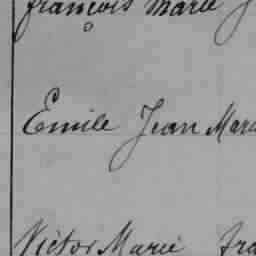 françois Marie
Emile Jean Marc
Victor Marie fra